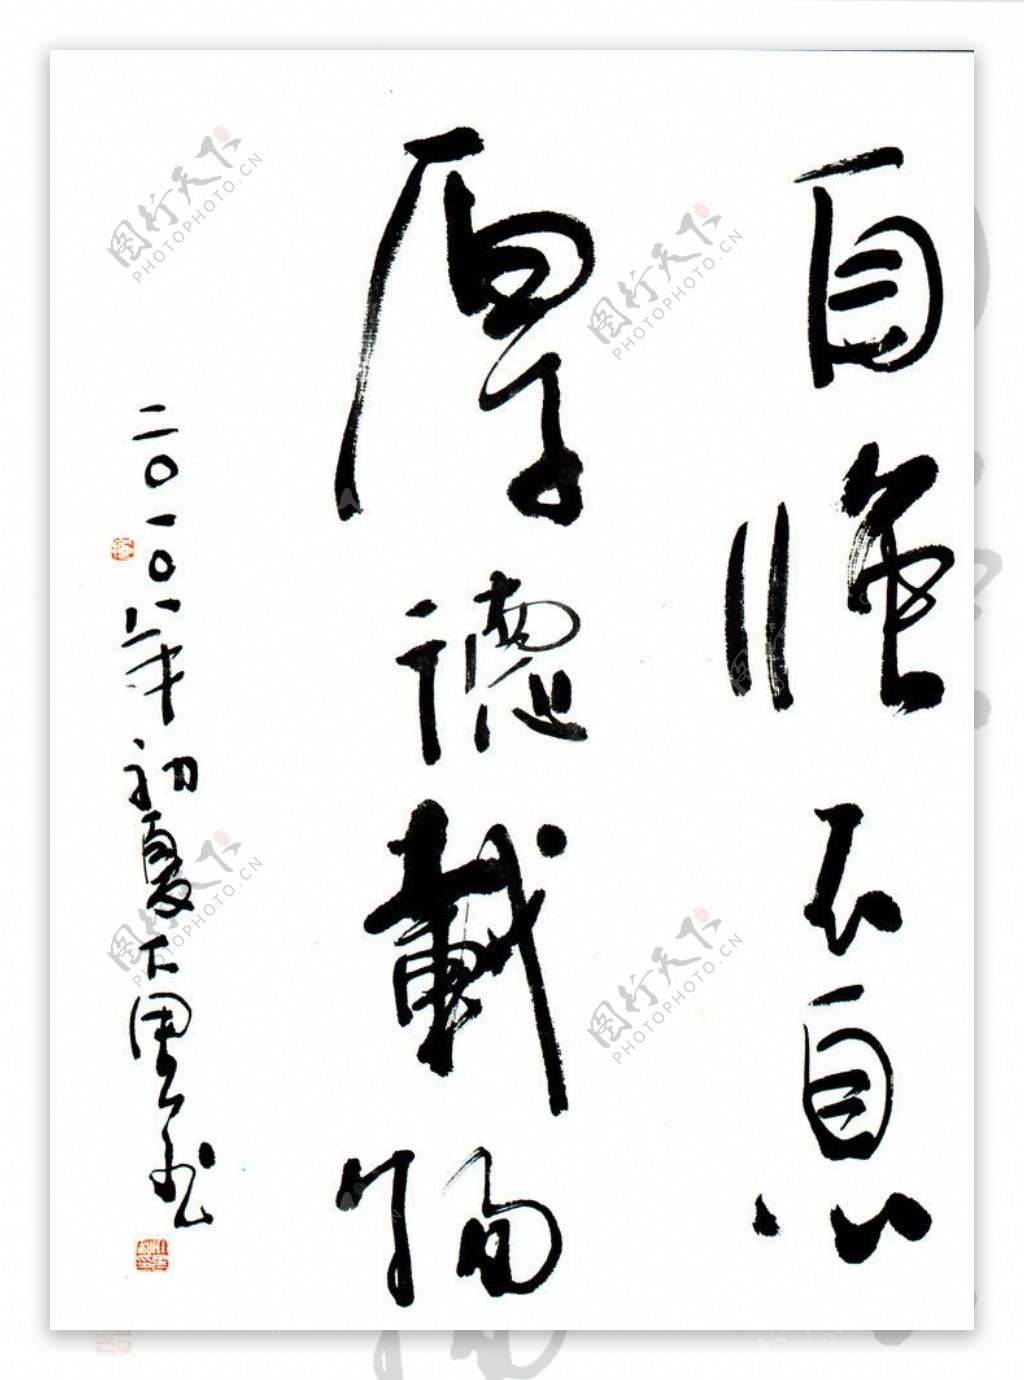 自强不息
厚德载物
二〇一〇年初夏
图行天下
PHOTOPHOTO.CN
图行天下
PHOTOPHOTO.CN
图行天下
PHOTOPHOTO.CN
图行天下
PHOTOPHOTO.CN